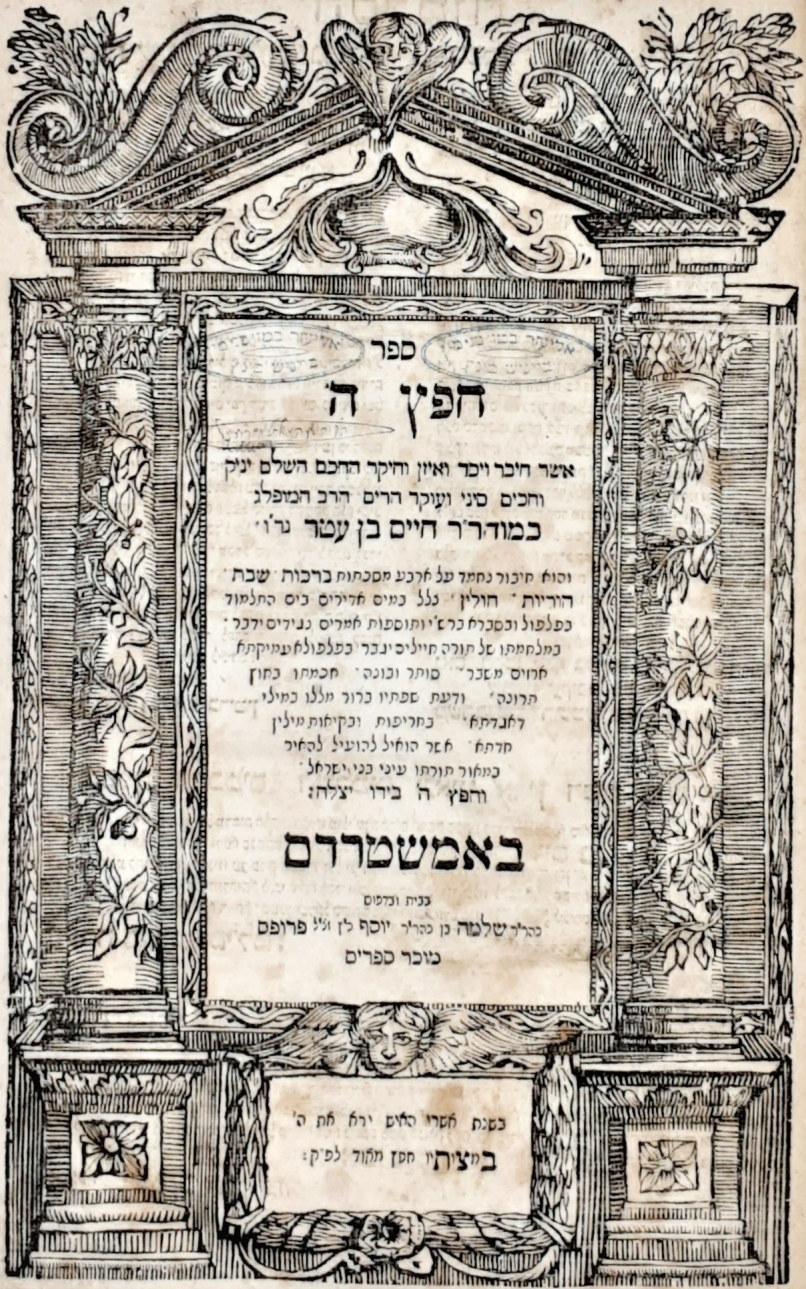 ספר
חפץ ה'
אשר חיבר ויסד ואיזן וחיקר החכם השלם יניק
וחכים סיני ועוקר הרים הרב המופלג
כמוהר״ר חיים בן עטר נר״ו
והוא חיבור נחמד על ארבע מסכתות ברכות שבת
הוריות חולין צלל במים אדירים בים התלמוד
בפלפול ובסברא ברש״י ותוספות אמרים נגידים ידבר
במלחמתו של תורה חיילים יגבר בפלפולא עמיקתא
ארזים משבר סותר ובונה חכמתו בחוץ
תרונה ודעת שפתיו ברור מללו במילי
דאגדתא בחריפות ובקיאות מילין
חדתא אשר הואיל להועיל להאיר
במאור תורתו עיני בני ישראל
וחפץ ה' בידו יצלח:
באמשטרדם
בבית ובדפוס
כהר״ר שלמה בן כהר״ר יוסף כ״ץ זצ״ל פרופס
מוכר ספרים
בשנת אשרי האיש ירא את ה'
במצותיו חפץ מאוד לפ״ק: